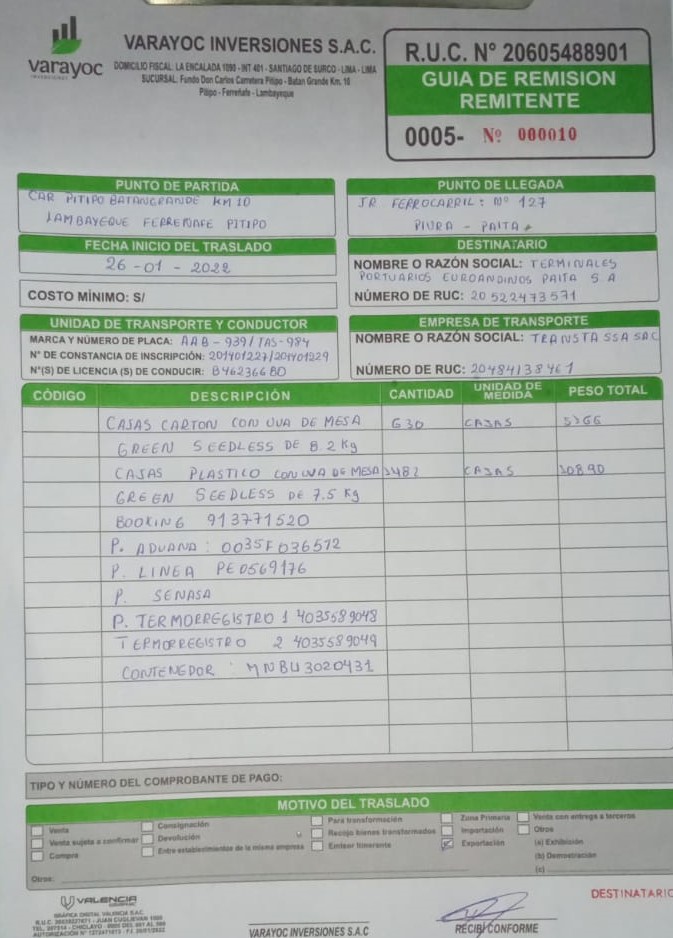 varayoc
INVERSIONES
VARAYOC INVERSIONES S.A.C.
DOMICILIO FISCAL: LA ENCALADA 1090 - INT 401 - SANTIAGO DE SURCO - LIMA - LIMA
SUCURSAL: Fundo Don Carlos Carretera Pitipo - Batan Grande Km. 10
Pitipo - Ferreñafe - Lambayeque
R.U.C. Nº 20605488901
GUIA DE REMISION
REMITENTE
0005- Nº 000010
PUNTO DE PARTIDA
CAR PITIPO BATANGRANDE KM 10
LAMBAYEQUE FERREÑAFE PITIPO
PUNTO DE LLEGADA
JR FERROCARRIL: Nº 127
PIURA - PAITA
FECHA INICIO DEL TRASLADO
26-01-2022
COSTO MÍNIMO: S/
DESTINATARIO
NOMBRE O RAZÓN SOCIAL: TERMINALES
PORTUARIOS EUROANDINOS PAITA S.A
NÚMERO DE RUC: 20522473571
UNIDAD DE TRANSPORTE Y CONDUCTOR
MARCA Y NÚMERO DE PLACA: AAB-939/TAS-984
N° DE CONSTANCIA DE INSCRIPCIÓN: 201401227/201401229
N°(S) DE LICENCIA (S) DE CONDUCIR: B46236680
EMPRESA DE TRANSPORTE
NOMBRE O RAZÓN SOCIAL: TRANSTA SSA SAC
NÚMERO DE RUC: 20484138461
CÓDIGO DESCRIPCIÓN CANTIDAD UNIDAD DE MEDIDA PESO TOTAL
CAJAS CARTON CON UVA DE MESA 630 CAJAS
GREEN SEEDLESS DE 8.2 Kg
CAJAS PLASTICO CON UVA DE MESA CAJAS 10890
GREEN SEEDLESS DE 7.5 Kg
BOOKING 913771520
P. ADUANA: 0035F036572
P. LINEA PE0569176
P. SENASA
P. TERMORREGISTRO 1 4035589048
TERMORREGISTRO 2 4035589049
CONTENEDOR: MNBU3020431
TIPO Y NÚMERO DEL COMPROBANTE DE PAGO:
MOTIVO DEL TRASLADO
Venta
Venta sujeta a confirmar
Compra
Consignación
Devolución
Entre establecimientos de la misma empresa
Para transformación
Recojo bienes transformados
Emisor Itinerante
Zona Primaria
Importación
Exportación
Venta con entrega a terceros
Otros
(a) Exhibición
(b) Demostración
(c)
Otros:
VALENCIA
GRÁFICA DIGITAL VALENCIA S.A.C.
VARAYOC INVERSIONES S.A.C
RECIBÍ CONFORME
DESTINATARIO